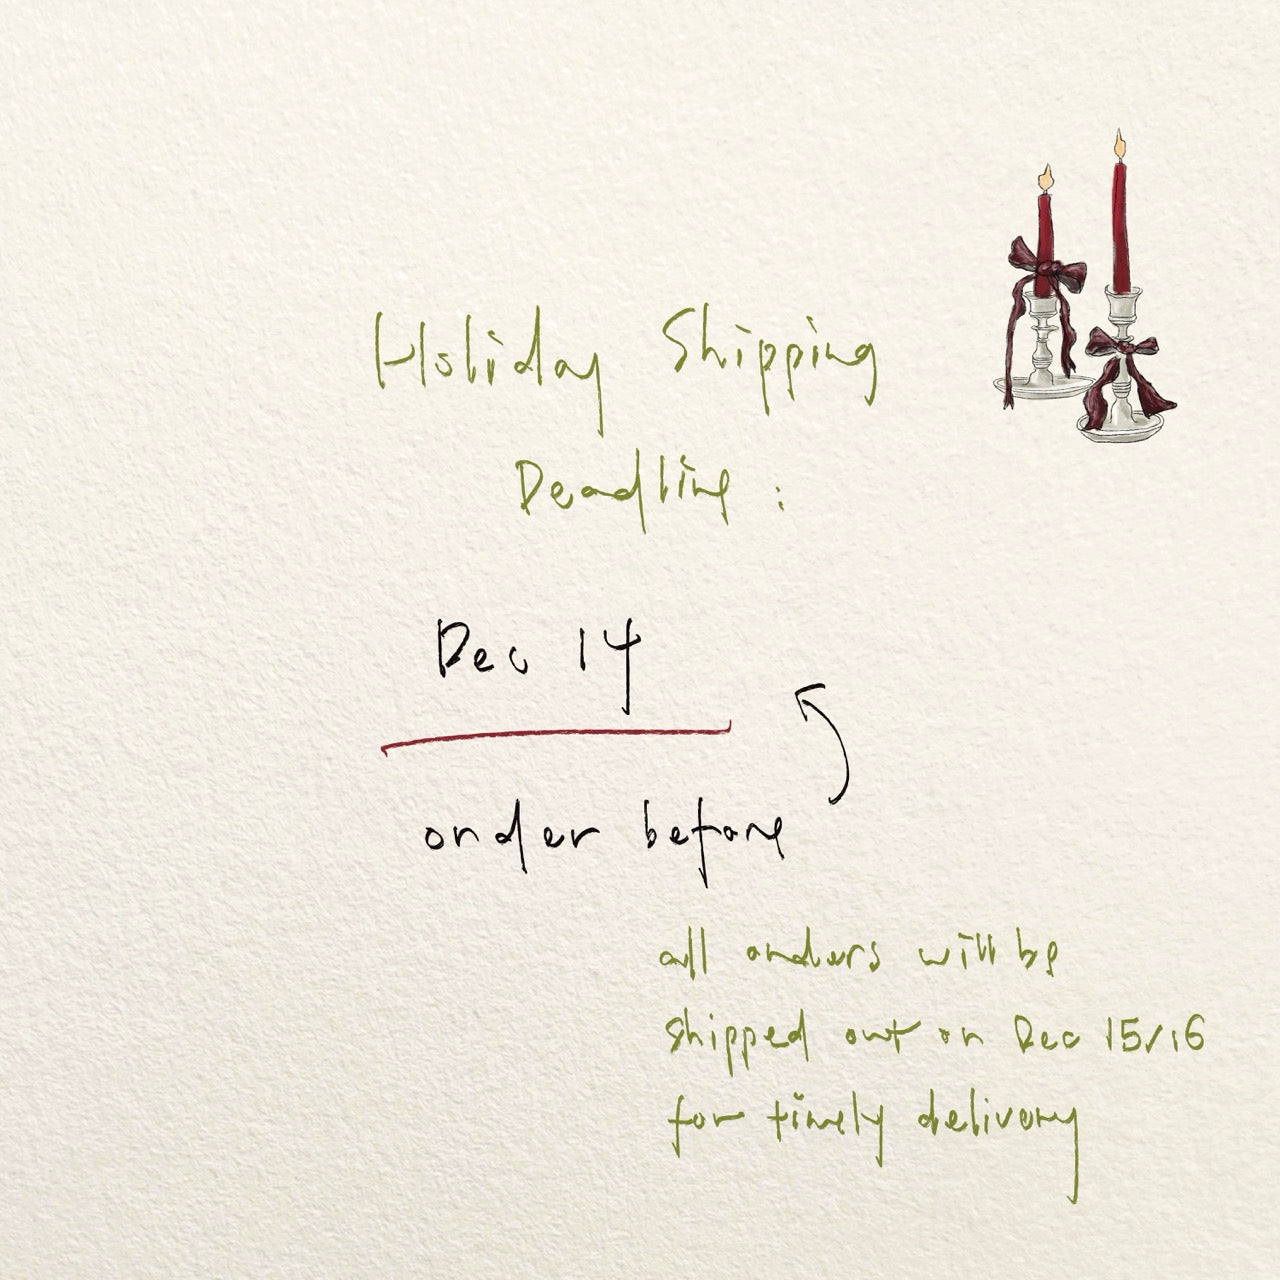 Holiday Shipping
Deadline :
Dec 14
order before
all orders will be
shipped out on Dec 15/16
for timely delivery